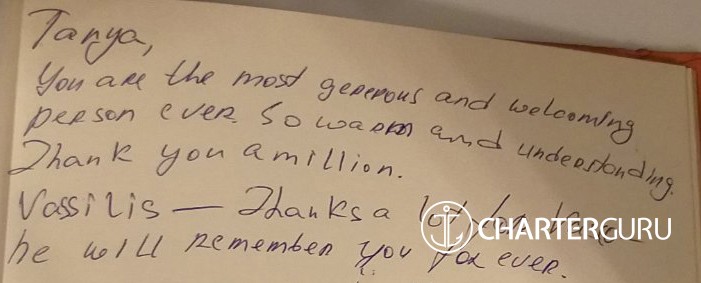 Tanya,
You are the most generous and welcoming
person ever. So warm and understanding.
Thank you a million.
Vassilis — Thanks a lot, for
he will remember you for ever.
CHARTERGURU